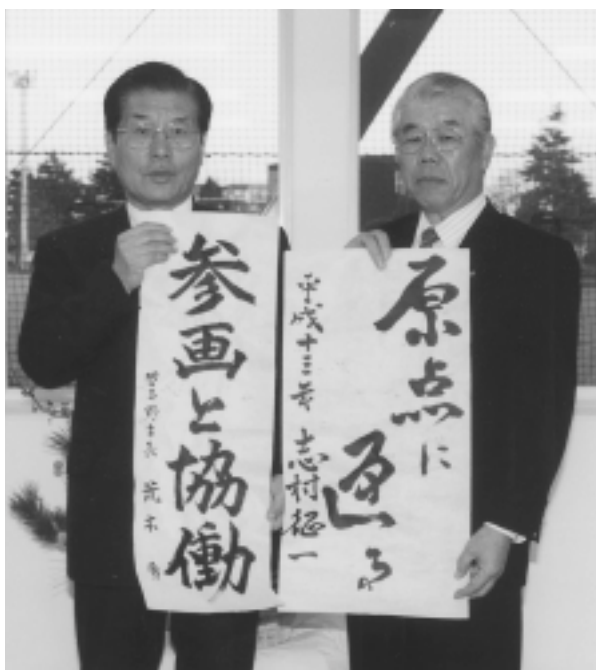 原点に
還る
平成十三年 志村征一
参画と協働
習志野市長 荒木 勇